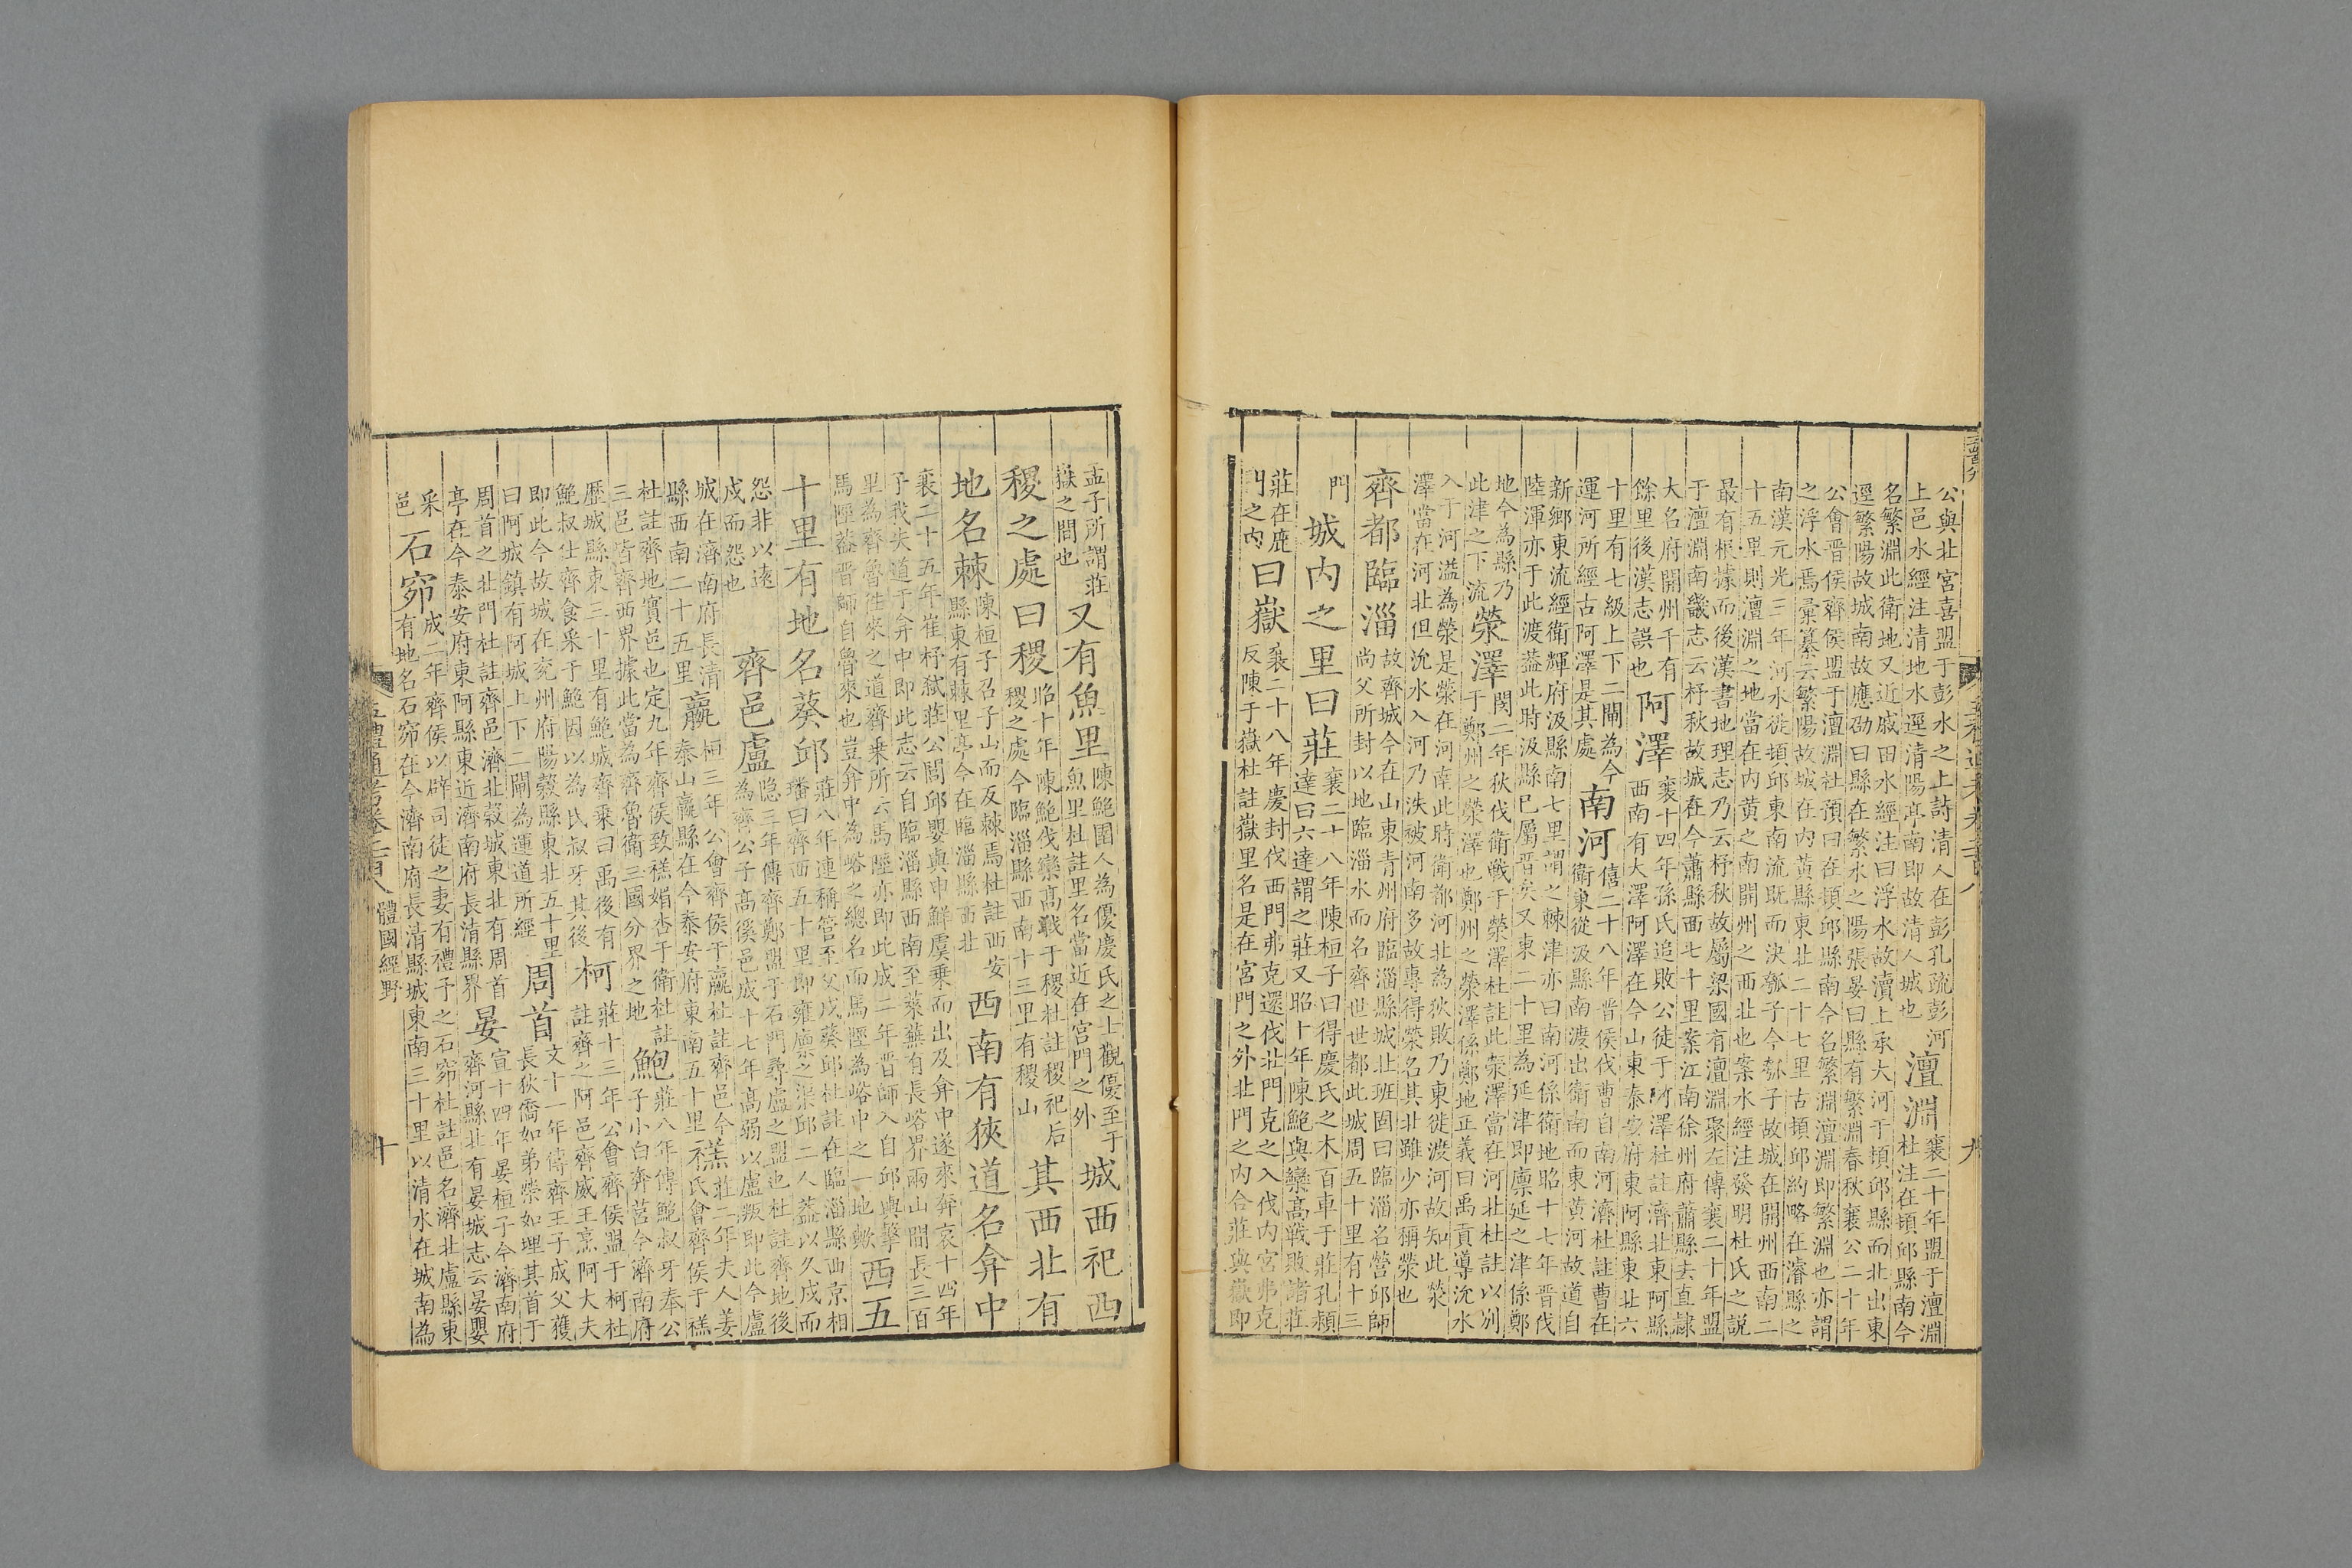 公與北宮喜盟于彭水之上詩清人在彭孔疏彭河
上邑水經注清地水逕清陽亭南即故清人城也
澶淵
襄二十年盟于澶淵
杜注在頓邱縣南今
名繁淵此衛地又近戚田水經注曰浮水故瀆上承大河于頓邱縣而北出東
逕繁陽故城南故應劭曰縣在繁水之陽張晏曰縣有繁淵春秋襄公二十年
公會晉侯齊侯盟于澶淵杜預曰在頓邱縣南今名繁淵澶淵即繁淵也亦謂
之浮水焉彙纂云繁陽故城在内黃縣東北二十七里古頓邱約略在濬縣之
南漢元光三年河水徙頓邱東南流既而決瓠子今瓠子故城在開州西南二
十五里則澶淵之地當在内黃之南開州之西北也案水經注發明杜氏之説
最有根據而後漢書地理志乃云杼秋故屬梁國有澶淵聚左傳襄二十年盟
于澶淵南畿志云杼秋故城在今蕭縣西七十里案江南徐州府蕭縣去直隸
大名府開州千有
餘里後漢志誤也
阿澤
襄十四年孫氏追敗公徒于阿澤杜註濟北東阿縣
西南有大澤阿澤在今山東泰安府東阿縣東北六
十里有七級上下二閘為今
運河所經古阿澤是其處
南河
僖二十八年晉侯伐曹自南河濟杜註曹在
衛東從汲縣南渡出衛南而東黃河故道自
新鄉東流經衛輝府汲縣南七里謂之棘津亦曰南河係衛地昭十七年晉伐
陸渾亦于此渡葢此時汲縣已屬晉矣又東二十里為延津即廪延之津係鄭
地今為縣乃
此津之下流
滎澤
閔二年秋伐衛戰于滎澤杜註此滎澤當在河北杜註以别
于鄭州之滎澤也鄭州之滎澤係鄭地正義曰禹貢導沇水
入于河溢為滎是滎在河南此時衛都河北為狄敗乃東徙渡河故知此滎
澤當在河北但沇水入河乃泆被河南多故專得滎名其北雖少亦稱滎也
齊都臨淄
故齊城今在山東青州府臨淄縣城北班固曰臨淄名營邱師
尚父所封以地臨淄水而名齊世世都此城周五十里有十三
門
城内之里曰莊
襄二十八年陳桓子曰得慶氏之木百車于莊孔穎
達曰六達謂之莊又昭十年陳鮑與欒高戰敗諸莊
莊在鹿
門之内
曰嶽
襄二十八年慶封伐西門弗克還伐北門克之入伐内宮弗克
反陳于嶽杜註嶽里名是在宮門之外北門之内合莊與嶽即
孟子所謂莊
嶽之間也
又有魚里
陳鮑圉人為優慶氏之士觀優至于
魚里杜註里名當近在宮門之外
城西祀西
稷之處曰稷
昭十年陳鮑伐欒高戰于稷杜註稷祀后
稷之處今臨淄縣西南十三里有稷山
其西北有
地名棘
陳桓子召子山而反棘焉杜註西安
縣東有棘里亭今在臨淄縣西北
西南有狹道名弇中
襄二十五年崔杼弒莊公閭邱嬰與申鮮虞乘而出及弇中遂來奔哀十四年
子我失道于弇中即此志云自臨淄縣西南至萊蕪有長峪界兩山間長三百
里為齊魯徃來之道齊乗所云馬陘亦即此成二年晉師入自邱輿擊
馬陘葢晉師自魯來也豈弇中為峪之總名而馬陘為峪中之一地歟
西五
十里有地名葵邱
莊八年連稱管至父戍葵邱杜註在臨淄縣西京相
璠曰齊西五十里即雍廪之渠邱二人葢以久戍而
怨非以遠
戍而怨也
齊邑盧
隐三年傳齊鄭盟于石門尋盧之盟也杜註齊地後
為齊公子高徯邑成十七年高弱以盧叛即此今盧
城在濟南府長清
縣西南二十五里
嬴
桓三年公會齊侯于嬴杜註齊邑今
泰山嬴縣在今泰安府東南五十里
禚
莊二年夫人姜
氏會齊侯于禚
杜註齊地實邑也定九年齊侯致禚媚杏于衛杜註
三邑皆齊西界據此當為齊魯衛三國分界之地
鮑
莊八年傳鮑叔牙奉公
子小白奔莒今濟南府
歷城縣東三十里有鮑城齊乘曰禹後有
鮑叔仕齊食采于鮑因以為氏叔牙其後
柯
莊十三年公會齊侯盟于柯杜
註齊之阿邑齊威王烹阿大夫
即此今故城在兖州府陽穀縣東北五十里
曰阿城鎮有阿城上下二閘為運道所經
周首
文十一年傳齊王子成父獲
長狄僑如弟榮如埋其首于
周首之北門杜註齊邑濟北榖城東北有周首
亭在今泰安府東阿縣東近濟南府長清縣界
晏
宣十四年晏桓子今濟南府
齊河縣北有晏城志云晏嬰
采
邑
石窌
成二年齊侯以辟司徒之妻有禮予之石窌杜註邑名濟北盧縣東
有地名石窌在今濟南府長清縣城東南三十里以清水在城南為
五禮通考卷二百八
體國經野
十
九